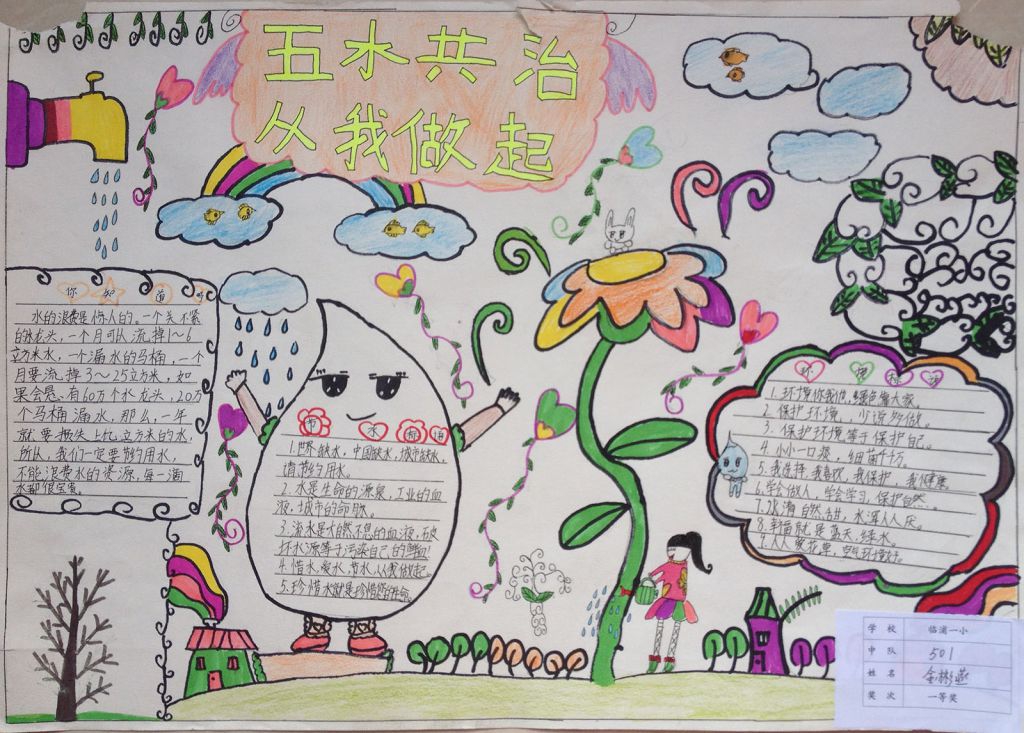 五水共治
从我做起
你知道吗
水的浪费是惊人的。一个关不紧
的水龙头，一个月可以流掉1～6
立方米水，一个漏水的马桶，一个
月要流掉3～25立方米，如
果会是、有60万个水龙头，20万
个马桶漏水，那么，一年
就要损失上亿立方米的水，
所以，我们一定要节约用水，
不能浪费水的资源，每一滴
水都很宝贵。
节水标语
1.世界缺水，中国缺水，城市缺水，
请节约用水。
2.水是生命的源泉，工业的血
液，城市的命脉。
3.流水是大自然不息的血液，破
坏水源等于污染自己的鲜血！
4.惜水、爱水、节水，从我做起。
5.珍惜水就是珍惜您的生命。
环境标语
1.环境你我他，绿色靠大家
2.保护环境，少说多做
3.保护环境等于保护自己。
4.小小一口痰，细菌千万。
5.我选择，我喜欢，我保护，我健康
6.学会做人，学会学习，保护自然。
7.水清自然洁，水浑人人厌。
8.幸福就是蓝天、绿水。
9.人人爱花草，空气环境好。
学校 临浦一小
中队 501
姓名 金彬燕
奖次 一等奖